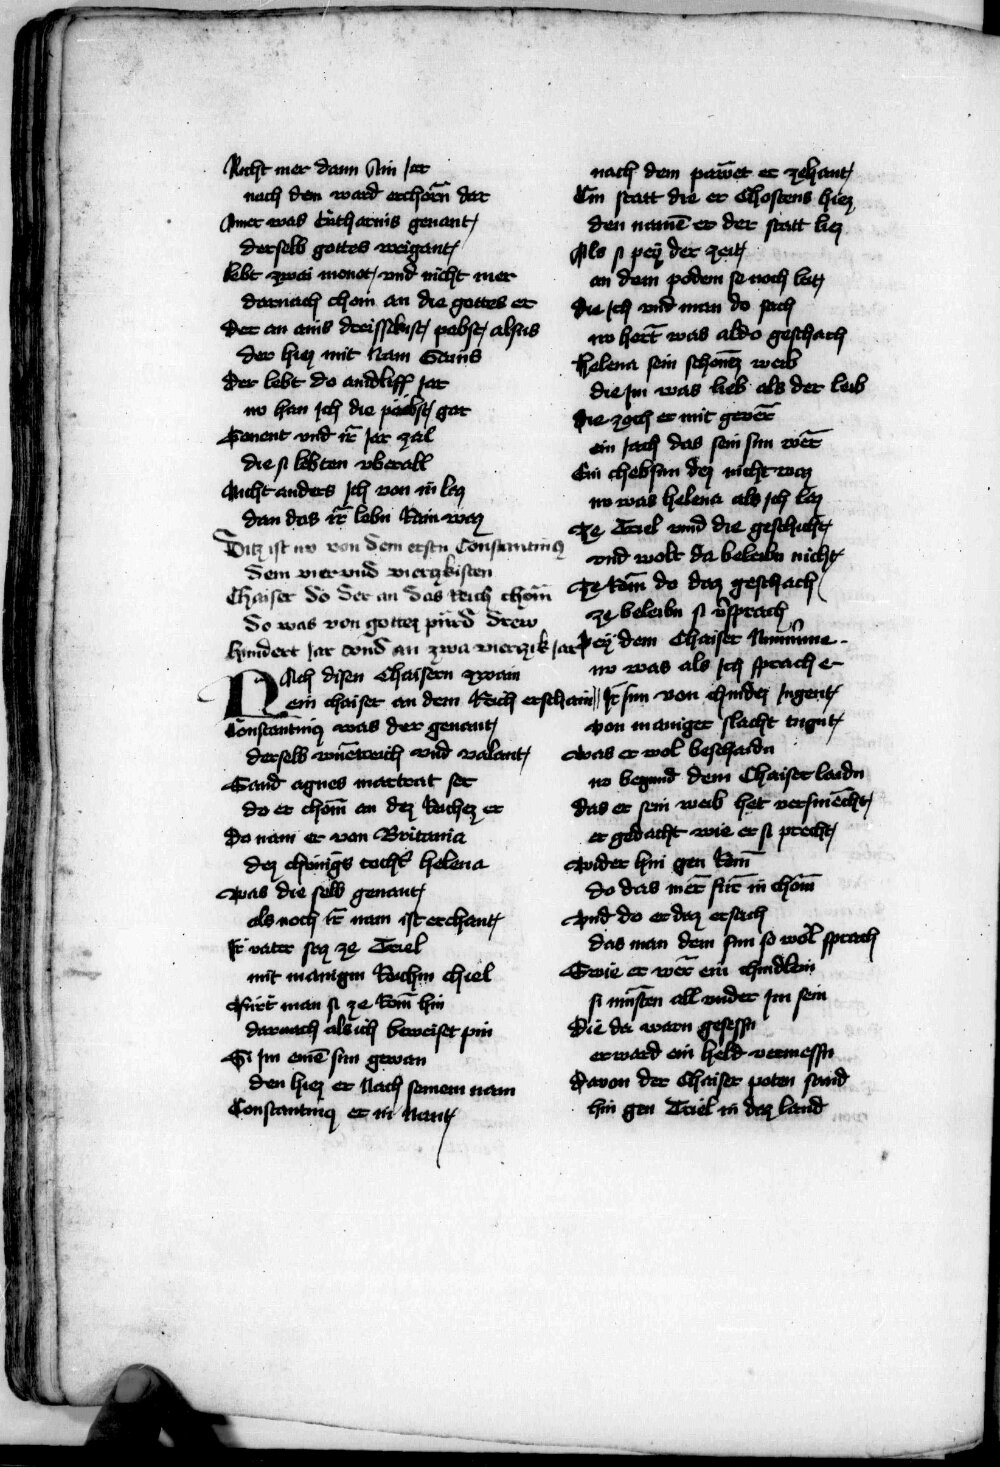 Nicht mer dann Ain Jar
nach dem ward erchorn̄ dar
Ainer was Eutharius genant
derselb gottes weigant
lebt zwai monet vnd nicht mer
darnach chom an die gottes er
Der an ains dreissikist pabst alsus
der hiez mit Nam Gaius
Der lebt do aindliff Jar
no han Jch die päbst gar
Genent vnd ir̄ Jar zal
die si lebten vberall
Nicht anders Jch von in las
dan das ir̄ lebn kain waz
Ditz ist no von dem erstn Constantinus
dem vier vnd vierczkisten
Chaiser do der an das Reich chom̄
do was von gottez pürd drew
hundert Jar vnd an zwa vierczik Jar
Nach disen Chaisern zwain
ein chaiser an dem Reich erschain
Constantinus was der genant
derselb wüetreich vnd valant
Sand agnes martrat ser
do er chom̄ an dez Reichez er
Do nam er von Britania
dez chünigs tocht̄ helena
was die selb genant
als noch ir̄ nam ist erchant
Ir vater saz ze Triel
mit manigm Reichm chiel
fürt man si ze Rom̄ hin
darnach als ich beweiset pin
Si Jm ainē sun gewan
den hiez er Nach seinem nam
Constantinus er in Nant
nach dem pawet er zehant
Ein statt die er Chostens hiez
den namē er der statt liez
Als si pey der zeit
an dem podem se noch leit
die Jch vnd man do sach
no hort was aldo geschach
Helena sein schones weib
die Jm was lieb als der leib
Die zoch er mit gewer̄
ein Jach das sein sun wer̄
Ein chebsun dez nicht waz
no was helena als Jch las
Ze Triel vnd die geschicht
vnd wolt da beleibn nicht
Ze Rom̄ do daz geschach
ze beleibn si v̄sprach
Pey dem Chaiser
no was als Jch sprach e
Ir sun von chindez Jugent
von maniger slacht tugnt
was er wol beschaidn
no begund dem Chaiser laidn
das er sein weib het versmēcht
er gedacht wie er si precht
wider hin gen Rom̄
do das mer̄ für in chom̄
Und do er daz ersach
das man dem sun so wol sprach
Swie er wer̄ ein chindlein
si müsten all vnder Jm sein
Die da warn gesessn
er ward ein held vermessn
Davon der Chaiser poten sand
hin gen Triel in daz land